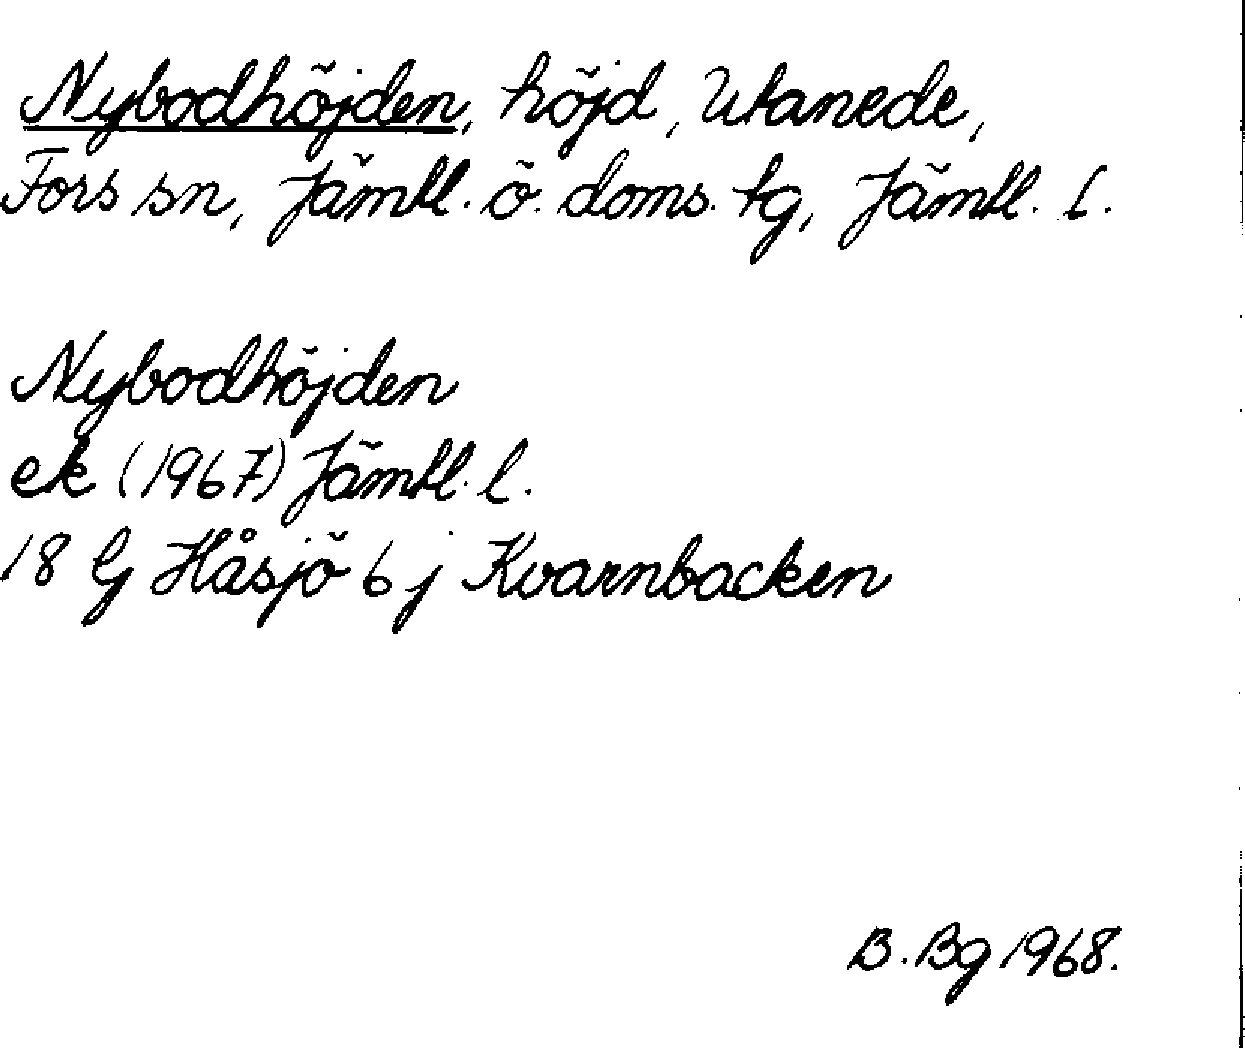 Nybodhöjden, höjd, Utanede,
Fors sn, Jämtl. ö. doms. tg, Jämtl. l.
Nybodhöjden
ek (1967) Jämtl. l.
18 G Håsjö 6 j Kvarnbacken
B. Bg 1968.